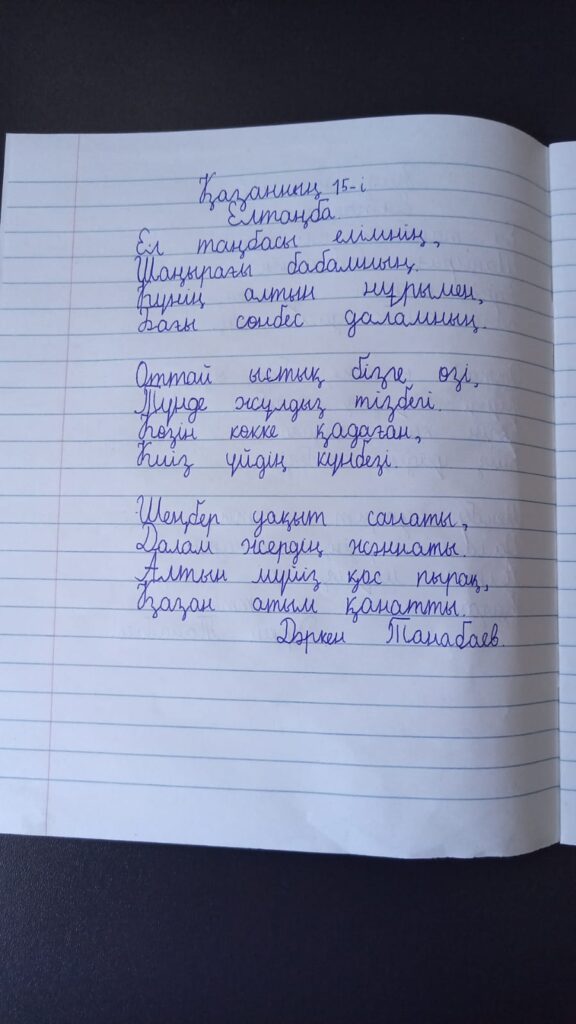 Қазанның 15-і
Елтаңба.
Ел таңбасы елімнің,
Шаңырағы бабамның.
Күнің алтын нұрымен,
Бағы сөнбес даламның.
Оттай ыстық бізге өзі,
Түнде жұлдыз тізбегі.
Көзін көкке қадаған,
Киіз үйдің күнбезі.
Шеңбер уақыт санаты,
Далам жердің жәннаты.
Алтын мүйіз қос пырақ,
Қазан атым қанатты.
Дәркен Танабаев.